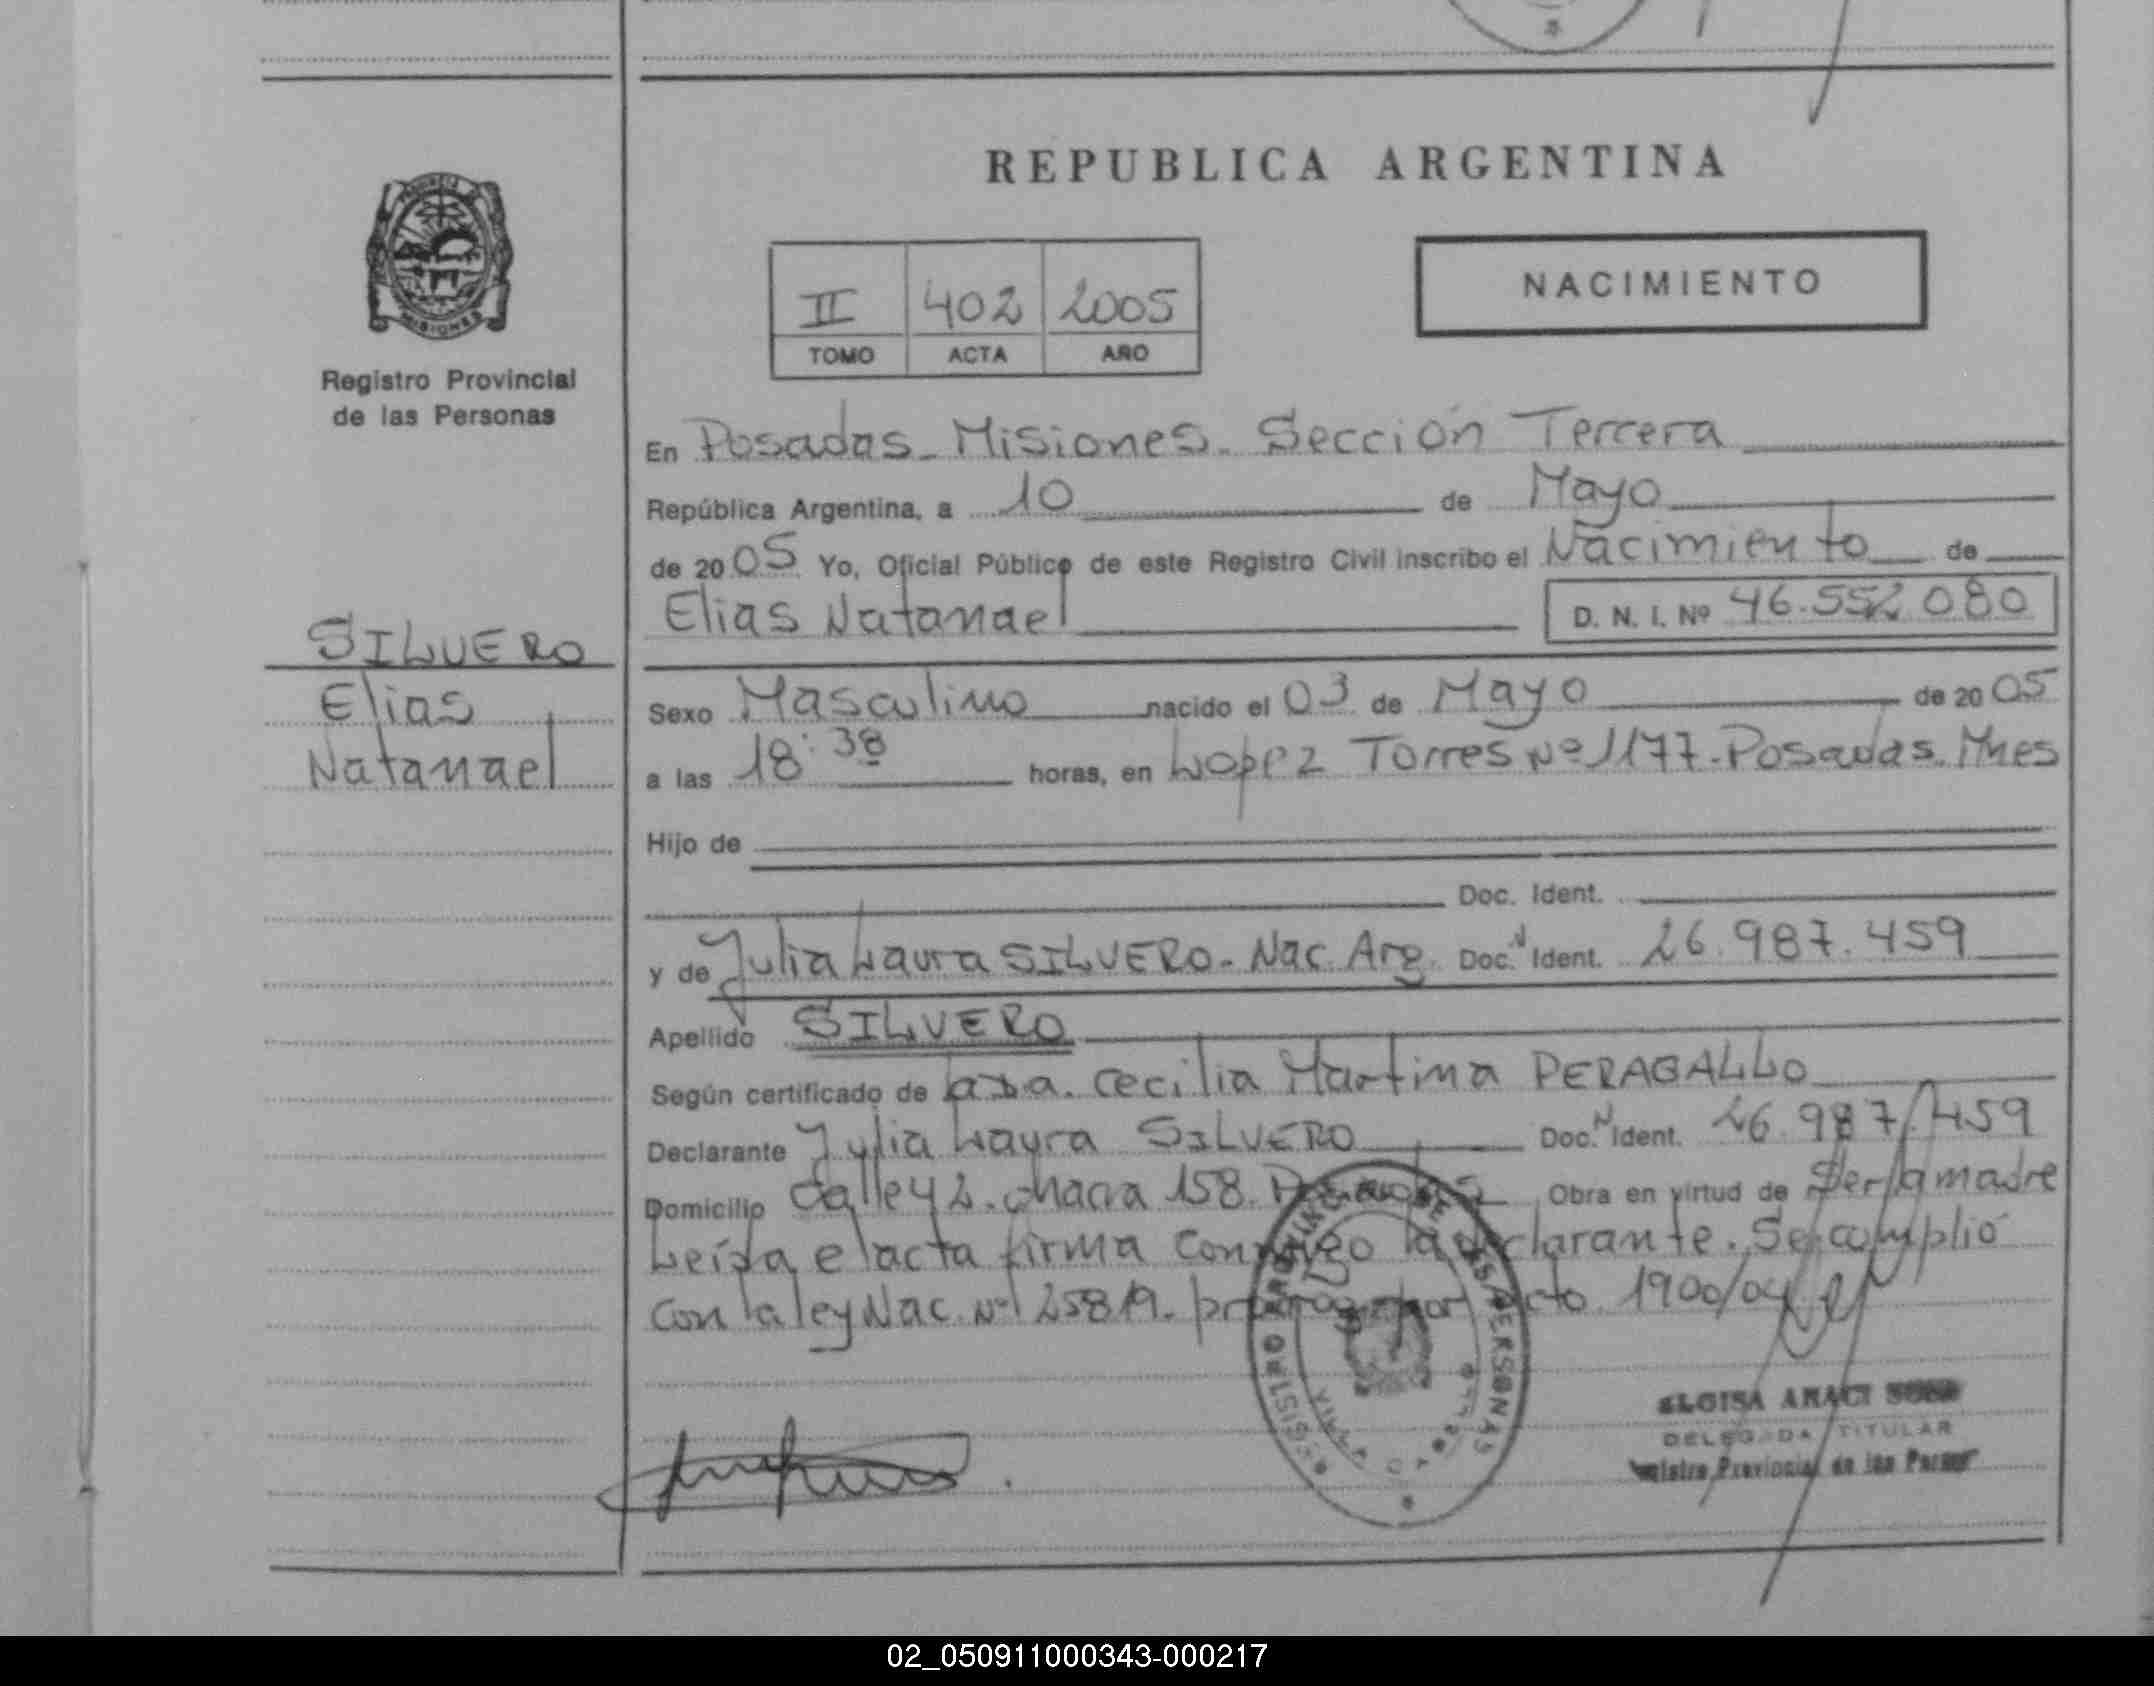 REPUBLICA ARGENTINA
NACIMIENTO
II 402 2005
TOMO ACTA AÑO
MISIONES
Registro Provincial
de las Personas
En Posadas - Misiones - Sección Tercera
República Argentina, a 10 de Mayo
de 2005 Yo, Oficial Público de este Registro Civil inscribo el Nacimiento de
Elias Natanael D. N. I. Nº 46.552.080
SILVERO
Elias
Natanael
Sexo Masculino nacido el 03 de Mayo de 2005
a las 18:38 horas, en Lopez Torres Nº 1177. Posadas. Mnes
Hijo de
Doc. Ident.
y de Julia Laura SILVERO - Nac. Arg. Doc. N Ident. 26.987.459
Apellido SILVERO
Según certificado de Cecilia Martina PERAGALLO
Declarante Julia Laura SILVERO Doc. N Ident. 26.987.459
Domicilio Calle 42. chacra 158. Obra en virtud de Ser la madre
Leída el acta firma conmigo la declarante. Se cumplió
con la ley Nac. Nº 25819. 1900/04
REGISTRO PROVINCIAL DE LAS PERSONAS
ELOISA ARACI
DELEGADA TITULAR
Registro Provincial de las Person
02_050911000343-000217